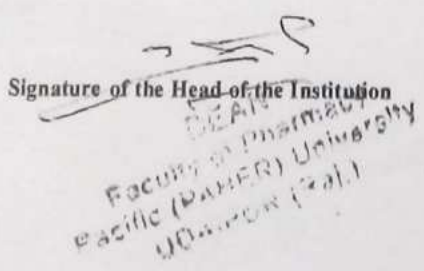 Signature of the Head of the Institution
DEAN
Faculty of Pharmacy
Pacific (PAHER) University
UDAIPUR (Raj.)